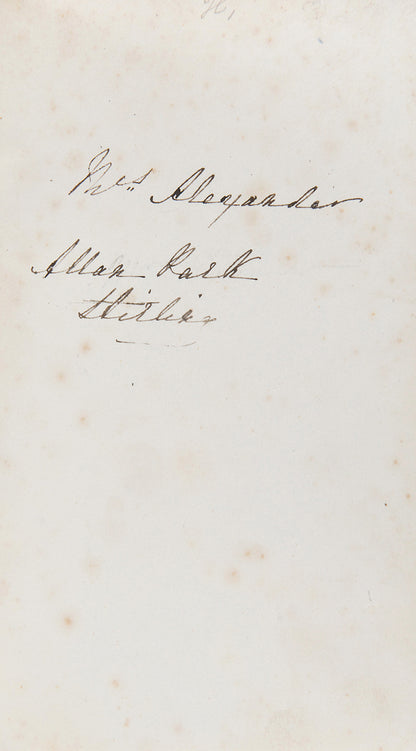 Mrs Alexander
Allan Park
Stirling